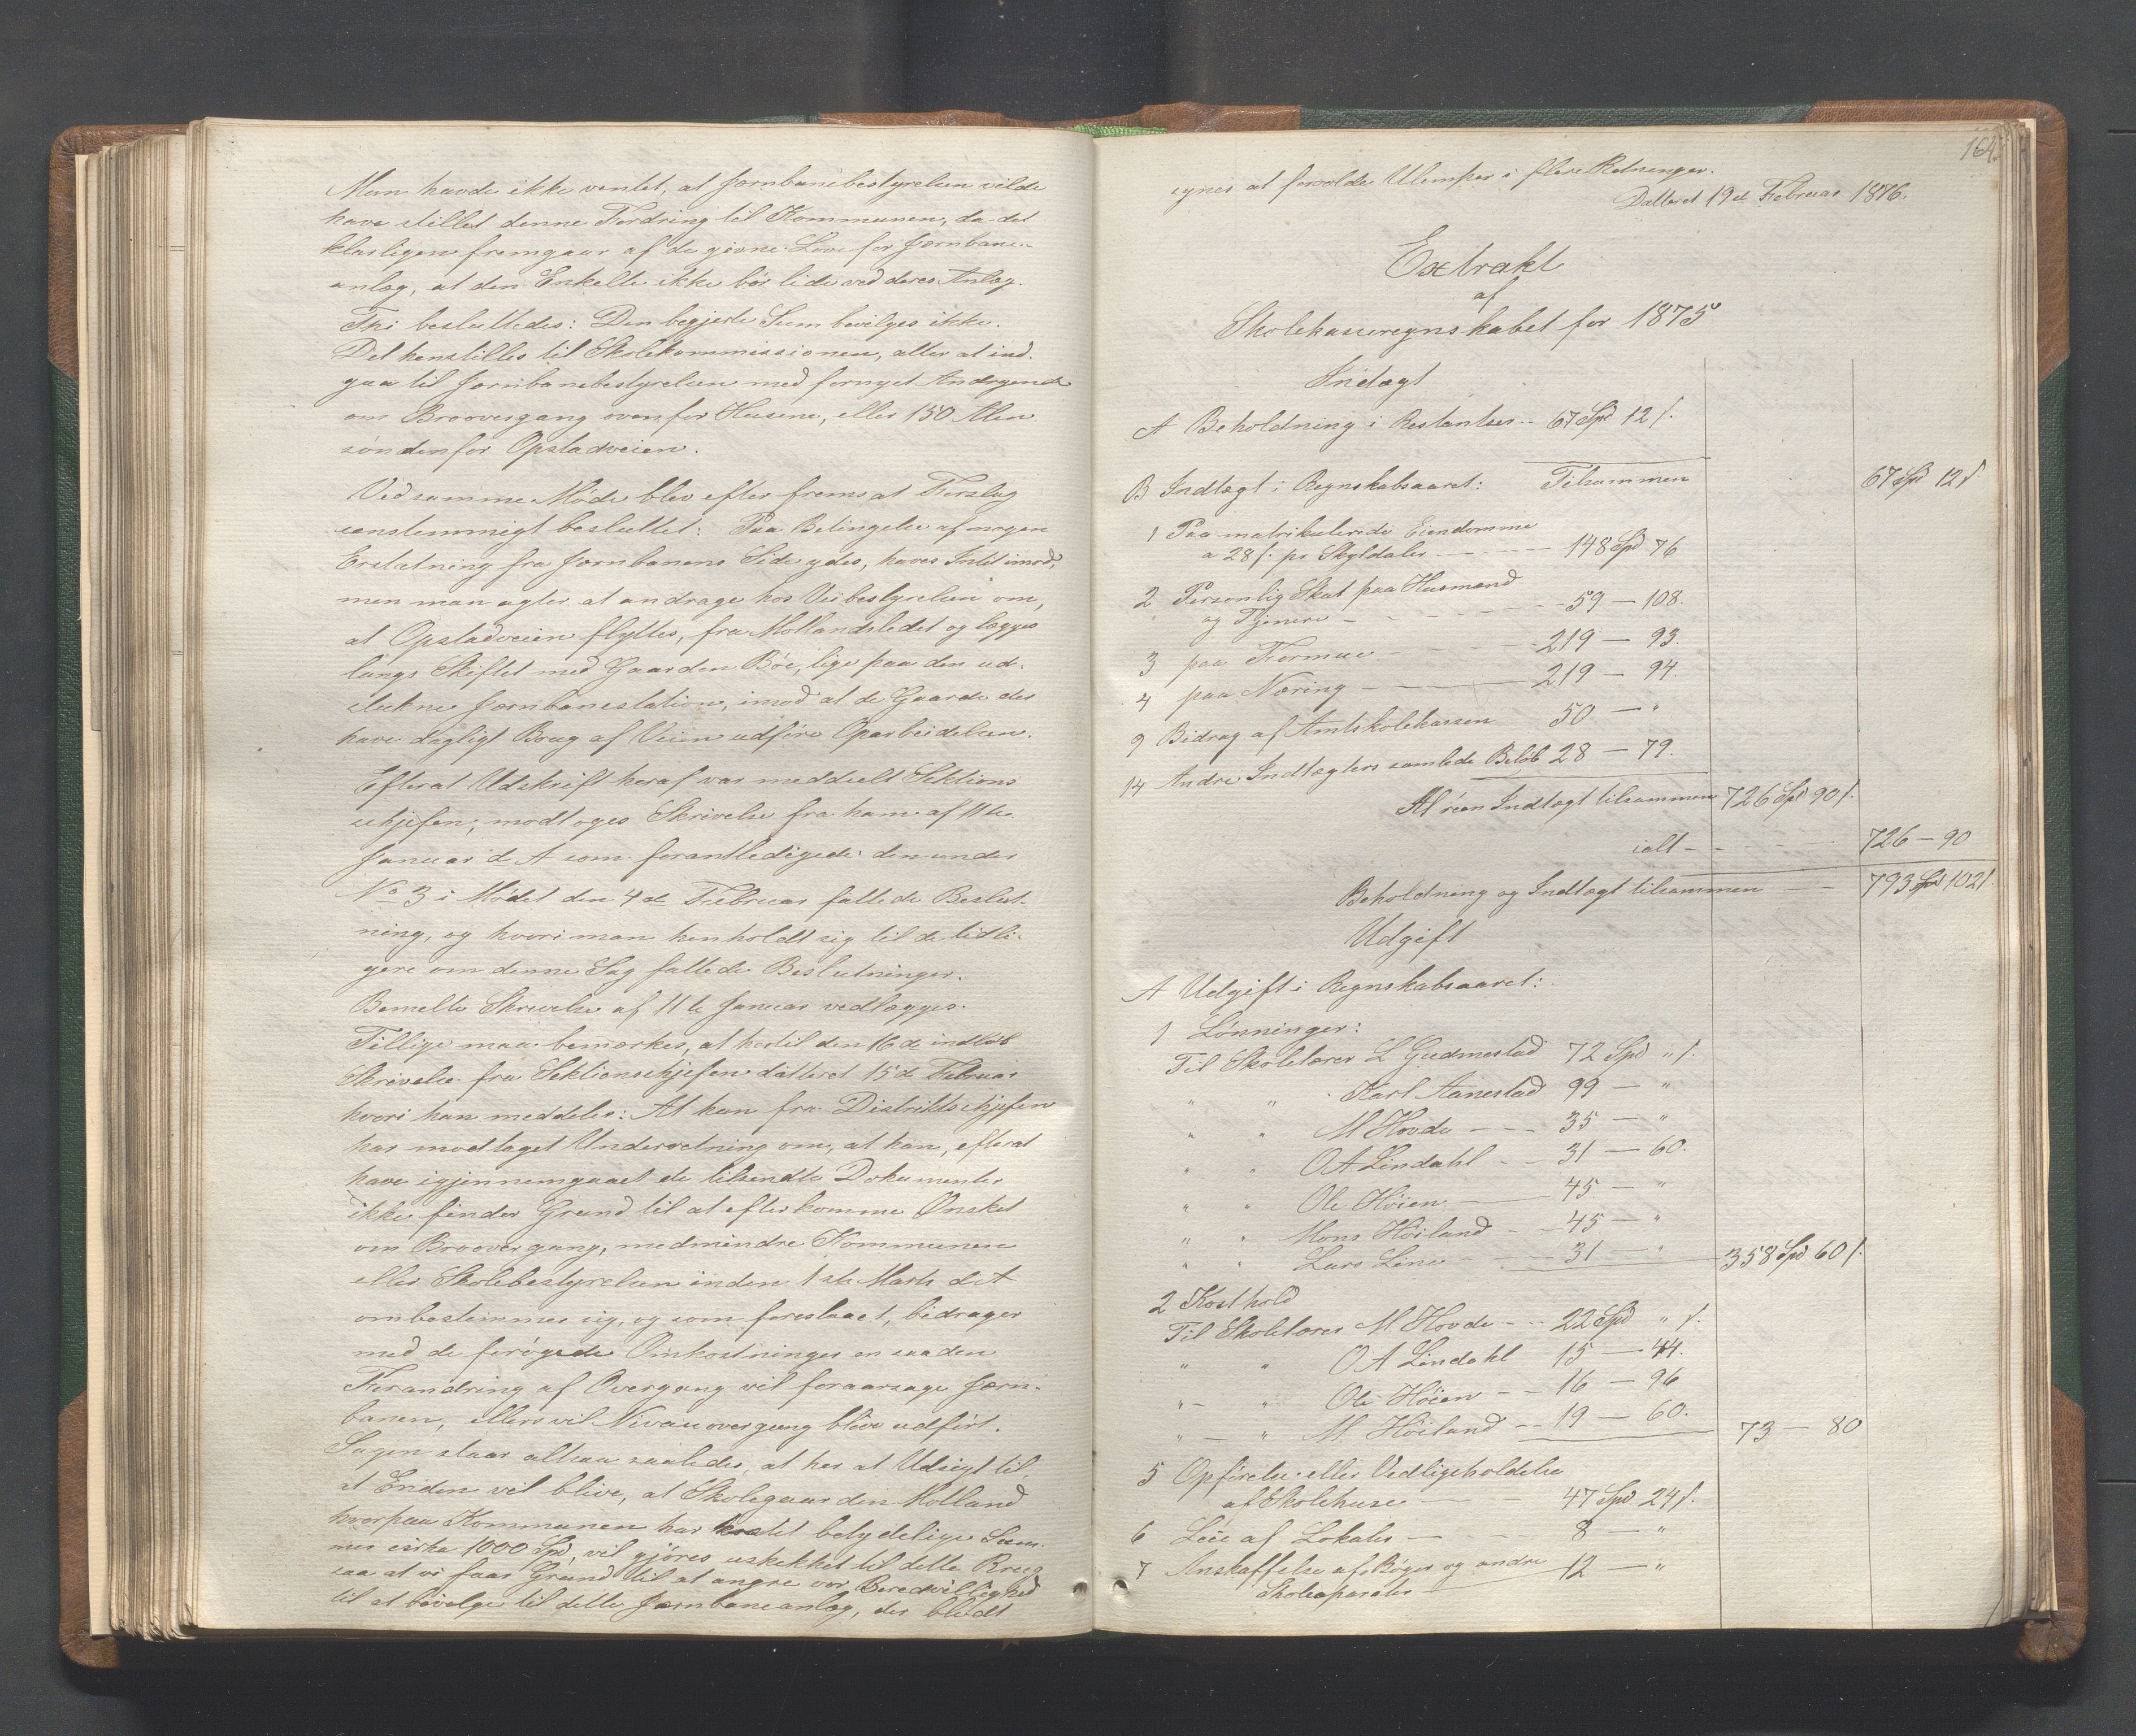 Man havde ikke ventet, at Jernbanebestyrelsen vilde
have stillet denne Fordring til Kommunen, da det
klarligen fremgaar af de givne Love for Jernbane-
anlæg, at den Enkelte ikke bør lide ved deres Anlæg.
Thi besluttedes: Den begjerte Sum bevilges ikke.
Det henstilles til Skolekommissionen, atter at ind-
gaa til Jernbanebestyrelsen med fornyet Andragende
om Broovergang ovenfor Husene, eller 150 Alen
søndenfor Opstadveien.
Ved samme Møde blev efter fremsat Forslag
eenstemmigt besluttet: Paa Betingelse af nogen
Erstatning fra Jernbanens Side ydes, haves Intet imod,
men man agter at andrage hos Veibestyrelsen om,
at Opstadveien flyttes, fra Mollandsledet og lægges
langs Skiftet med Gaarden Bøe, lige paa den ud-
stukne Jernbanestation, imod at de Gaarde der
have dagligt Brug af Veien udføre Oparbeidelsen.
Efterat Udskrift heraf var meddeelt Sektions
chefen, modtoges Skrivelse fra ham af 11te
Januar d A som foranledigede den under
No 3 i Mødet den 4de Februar fattede Beslut-
ning, og hvori man henholdt sig til de tidli-
gere om denne Sag fattede Beslutninger.
Bemelte Skrivelse af 11te Januar vedlægges.
Tillige maa bemærkes, at hertil den 16de indløb
Skrivelse fra Sektionschjefen datteret 15de Februar
hvori han meddeler: At han fra Distriktschjefen
har modtaget Underretning om, at han, efterat
have igjennemgaaet de tilsendte Dokumenter
ikke finder Grund til at efterkomme Ønsket
om Broovergang, medmindre Kommunen
eller Skolebestyrelsen inden 1ste Marts d A
ombestemmer sig, og som foreslaaet, bidrager
med de forøgede Omkostninger en saadan
Forandring af Overgang vil foraarsage Jern-
banen, ellers vil Niveauovergang blive udført.
Sagen staar altsaa saaledes, at her at Udsigt til,
at Enden vil blive, at Skolegaarden Molland
hvorpaa Kommunen har kostet betydelige Sum-
mer cirka 1000 Spd, vil gjøres uskikket til dette Brug
saa at vi faar Grund til at angre vor Beredvillighed
til at bevilge til dette Jernbaneanlæg, der blidt
164
synes at forvolde Ulemper i flere Retninger.
Datteret 19de Februar 1876.
Extrakt
af
Skolekasseregnskabet for 1875
Indtægt
A Beholdning i Restantser -- 67 Spd 12 s.
Tilsammen 67 Spd 12 s.
B Indtægt i Regnskabsaaret:
1 Paa matrikulerede Eiendomme
a 28 s. pr Skyldaler --- 148 Spd 76
2 Personlig Skat paa Husmænd
og Tjenere --- 59 — 108.
3 paa Formue --- 219 — 93.
4 paa Næring --- 219 — 94.
9 Bidrag af Amtskolekassen 50 — "
14 Andre Indtægters samlede Beløb 28 — 79.
Al reen Indtægt tilsammen 726 Spd 90 s.
ialt --- 726 — 90
Beholdning og Indtægt tilsammen -- 793 Spd 102 s.
Udgift
A Udgift i Regnskabsaaret:
1 Lønninger:
Til Skolelærer L Gudmestad 72 Spd " s.
" " Karl Aanestad 99 — "
" " M Hovde --- 35 — "
" " O A Lindahl -- 31 — 60.
" " Ole Høien --- 45 — "
" " Mons Høiland -- 45 — "
" " Lars Line --- 31 — " 358 Spd 60 s.
2 Kosthold
Til Skolelærer M Hovde --- 22 Spd " s.
" " O A Lindahl 15 — 44.
" — " Ole Høien -- 16 — 96
" — " M Høiland -- 19 — 60. 73 — 80
5 Opførelse eller Vedligeholdelse
af Skolehuse --- 47 Spd 24 s.
6 Leie af Lokaler --- 8 — "
7 Anskaffelse af Bøger og andre 12 — "
Skoleaparater